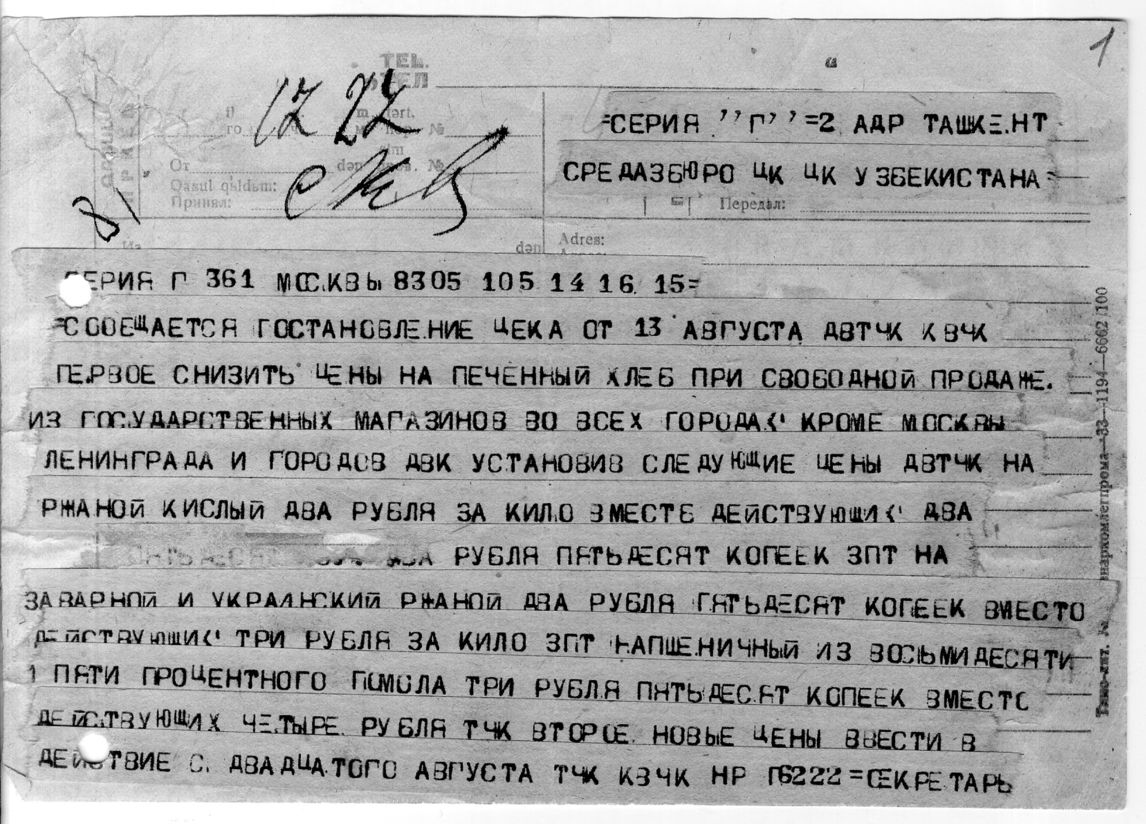 1
TEL.
ТЕЛ.
12 22
=СЕРИЯ ''Г''=2 АДР ТАШКЕ.НТ
СРЕДАЗБЮРО ЦК ЦК УЗБЕКИСТАНА=
От
Qəsul qıldım:
Принял:
Передал:
81
Adres:
СЕРИЯ Г 361 МОСКВЫ 8305 105 14 16 15=
=СООБЩАЕТСЯ ПОСТАНОВЛЕНИЕ ЦЕКА ОТ 13 АВГУСТА ДВТЧК КВЧК
ПЕРВОЕ СНИЗИТЬ ЦЕНЫ НА ПЕЧЕННЫЙ ХЛЕБ ПРИ СВОБОДНОЙ ПРОДАЖЕ.
ИЗ ГОСУДАРСТВЕННЫХ МАГАЗИНОВ ВО ВСЕХ ГОРОДАХ КРОМЕ МОСКВЫ
ЛЕНИНГРАДА И ГОРОДОВ ДВК УСТАНОВИВ СЛЕДУЮЩИЕ ЦЕНЫ ДВТЧК НА
РЖАНОЙ КИСЛЫЙ ДВА РУБЛЯ ЗА КИЛО ВМЕСТЕ ДЕЙСТВУЮЩИХ ДВА
ДВА РУБЛЯ ПЯТЬДЕСЯТ КОПЕЕК ЗПТ НА
ЗАВАРНОЙ И УКРАИНСКИЙ РЖАНОЙ ДВА РУБЛЯ ПЯТЬДЕСЯТ КОПЕЕК ВМЕСТО
ДЕЙСТВУЮЩИХ ТРИ РУБЛЯ ЗА КИЛО ЗПТ НАПШЕНИЧНЫЙ ИЗ ВОСЬМИДЕСЯТИ
ПЯТИ ПРОЦЕНТНОГО ПОМОЛА ТРИ РУБЛЯ ПЯТЬДЕСЯТ КОПЕЕК ВМЕСТО
ДЕЙСТВУЮЩИХ ЧЕТЫРЕ РУБЛЯ ТЧК ВТОРОЕ НОВЫЕ ЦЕНЫ ВВЕСТИ В
ДЕЙСТВИЕ С. ДВАДЦАТОГО АВГУСТА ТЧК КВЧК НР Г6222=СЕКРЕТАРЬ
33—1194—6662/100